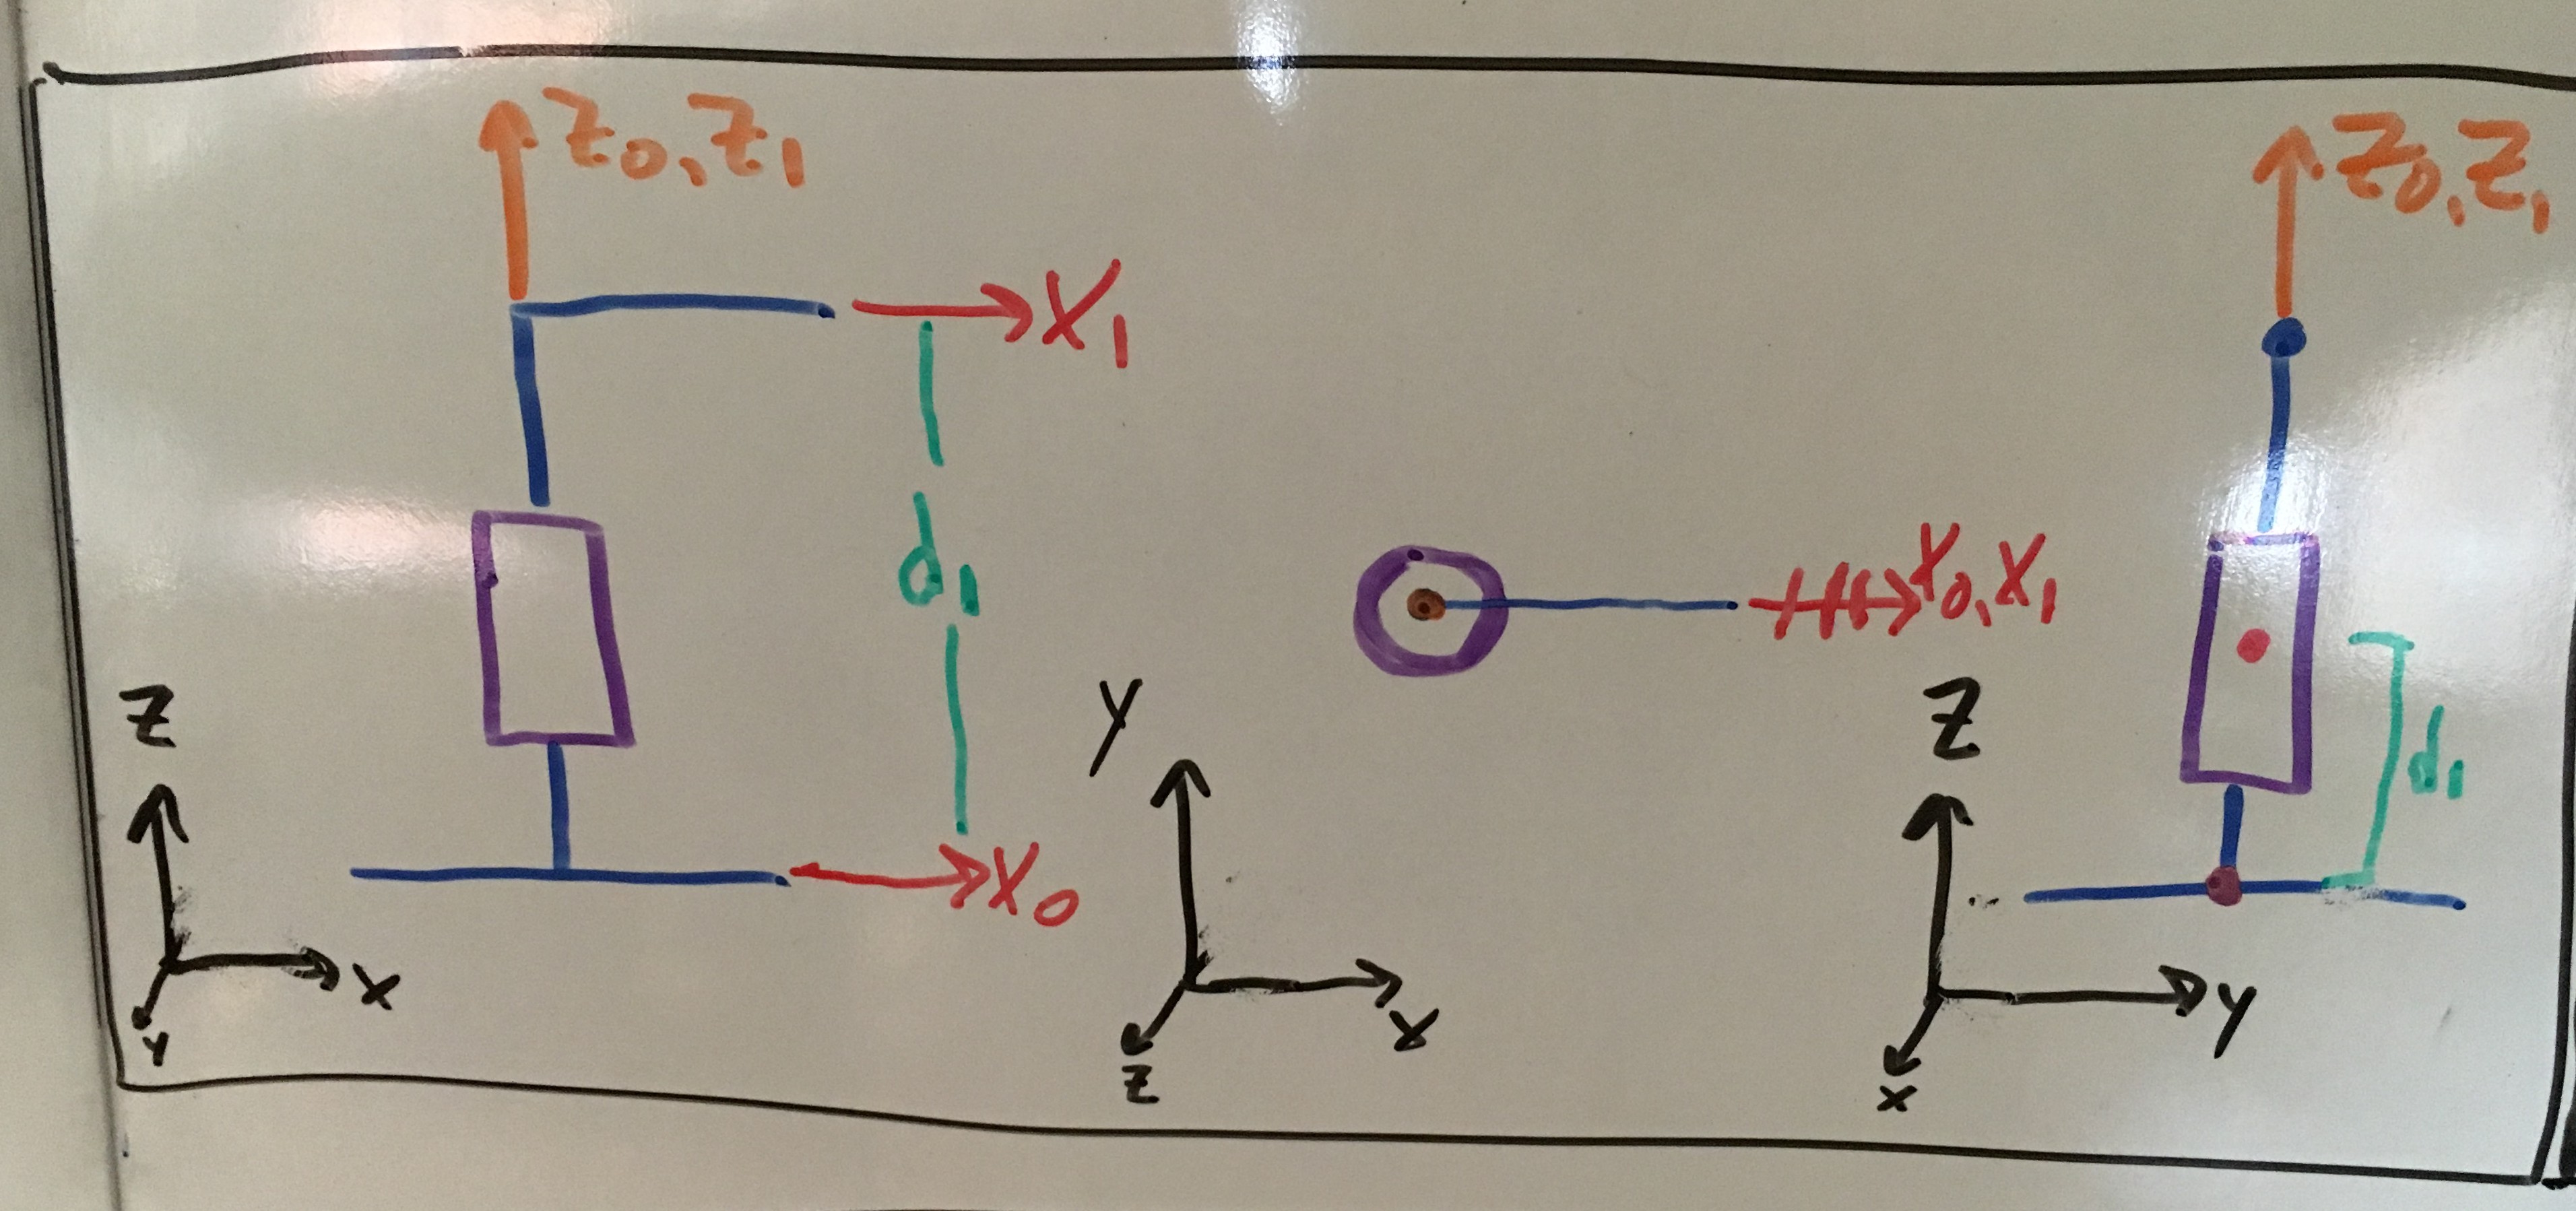 Z0, Z1
X1
d1
X0
Z
X
Y
X0, X1
Y
X
Z
Z0, Z1
d1
Z
Y
X